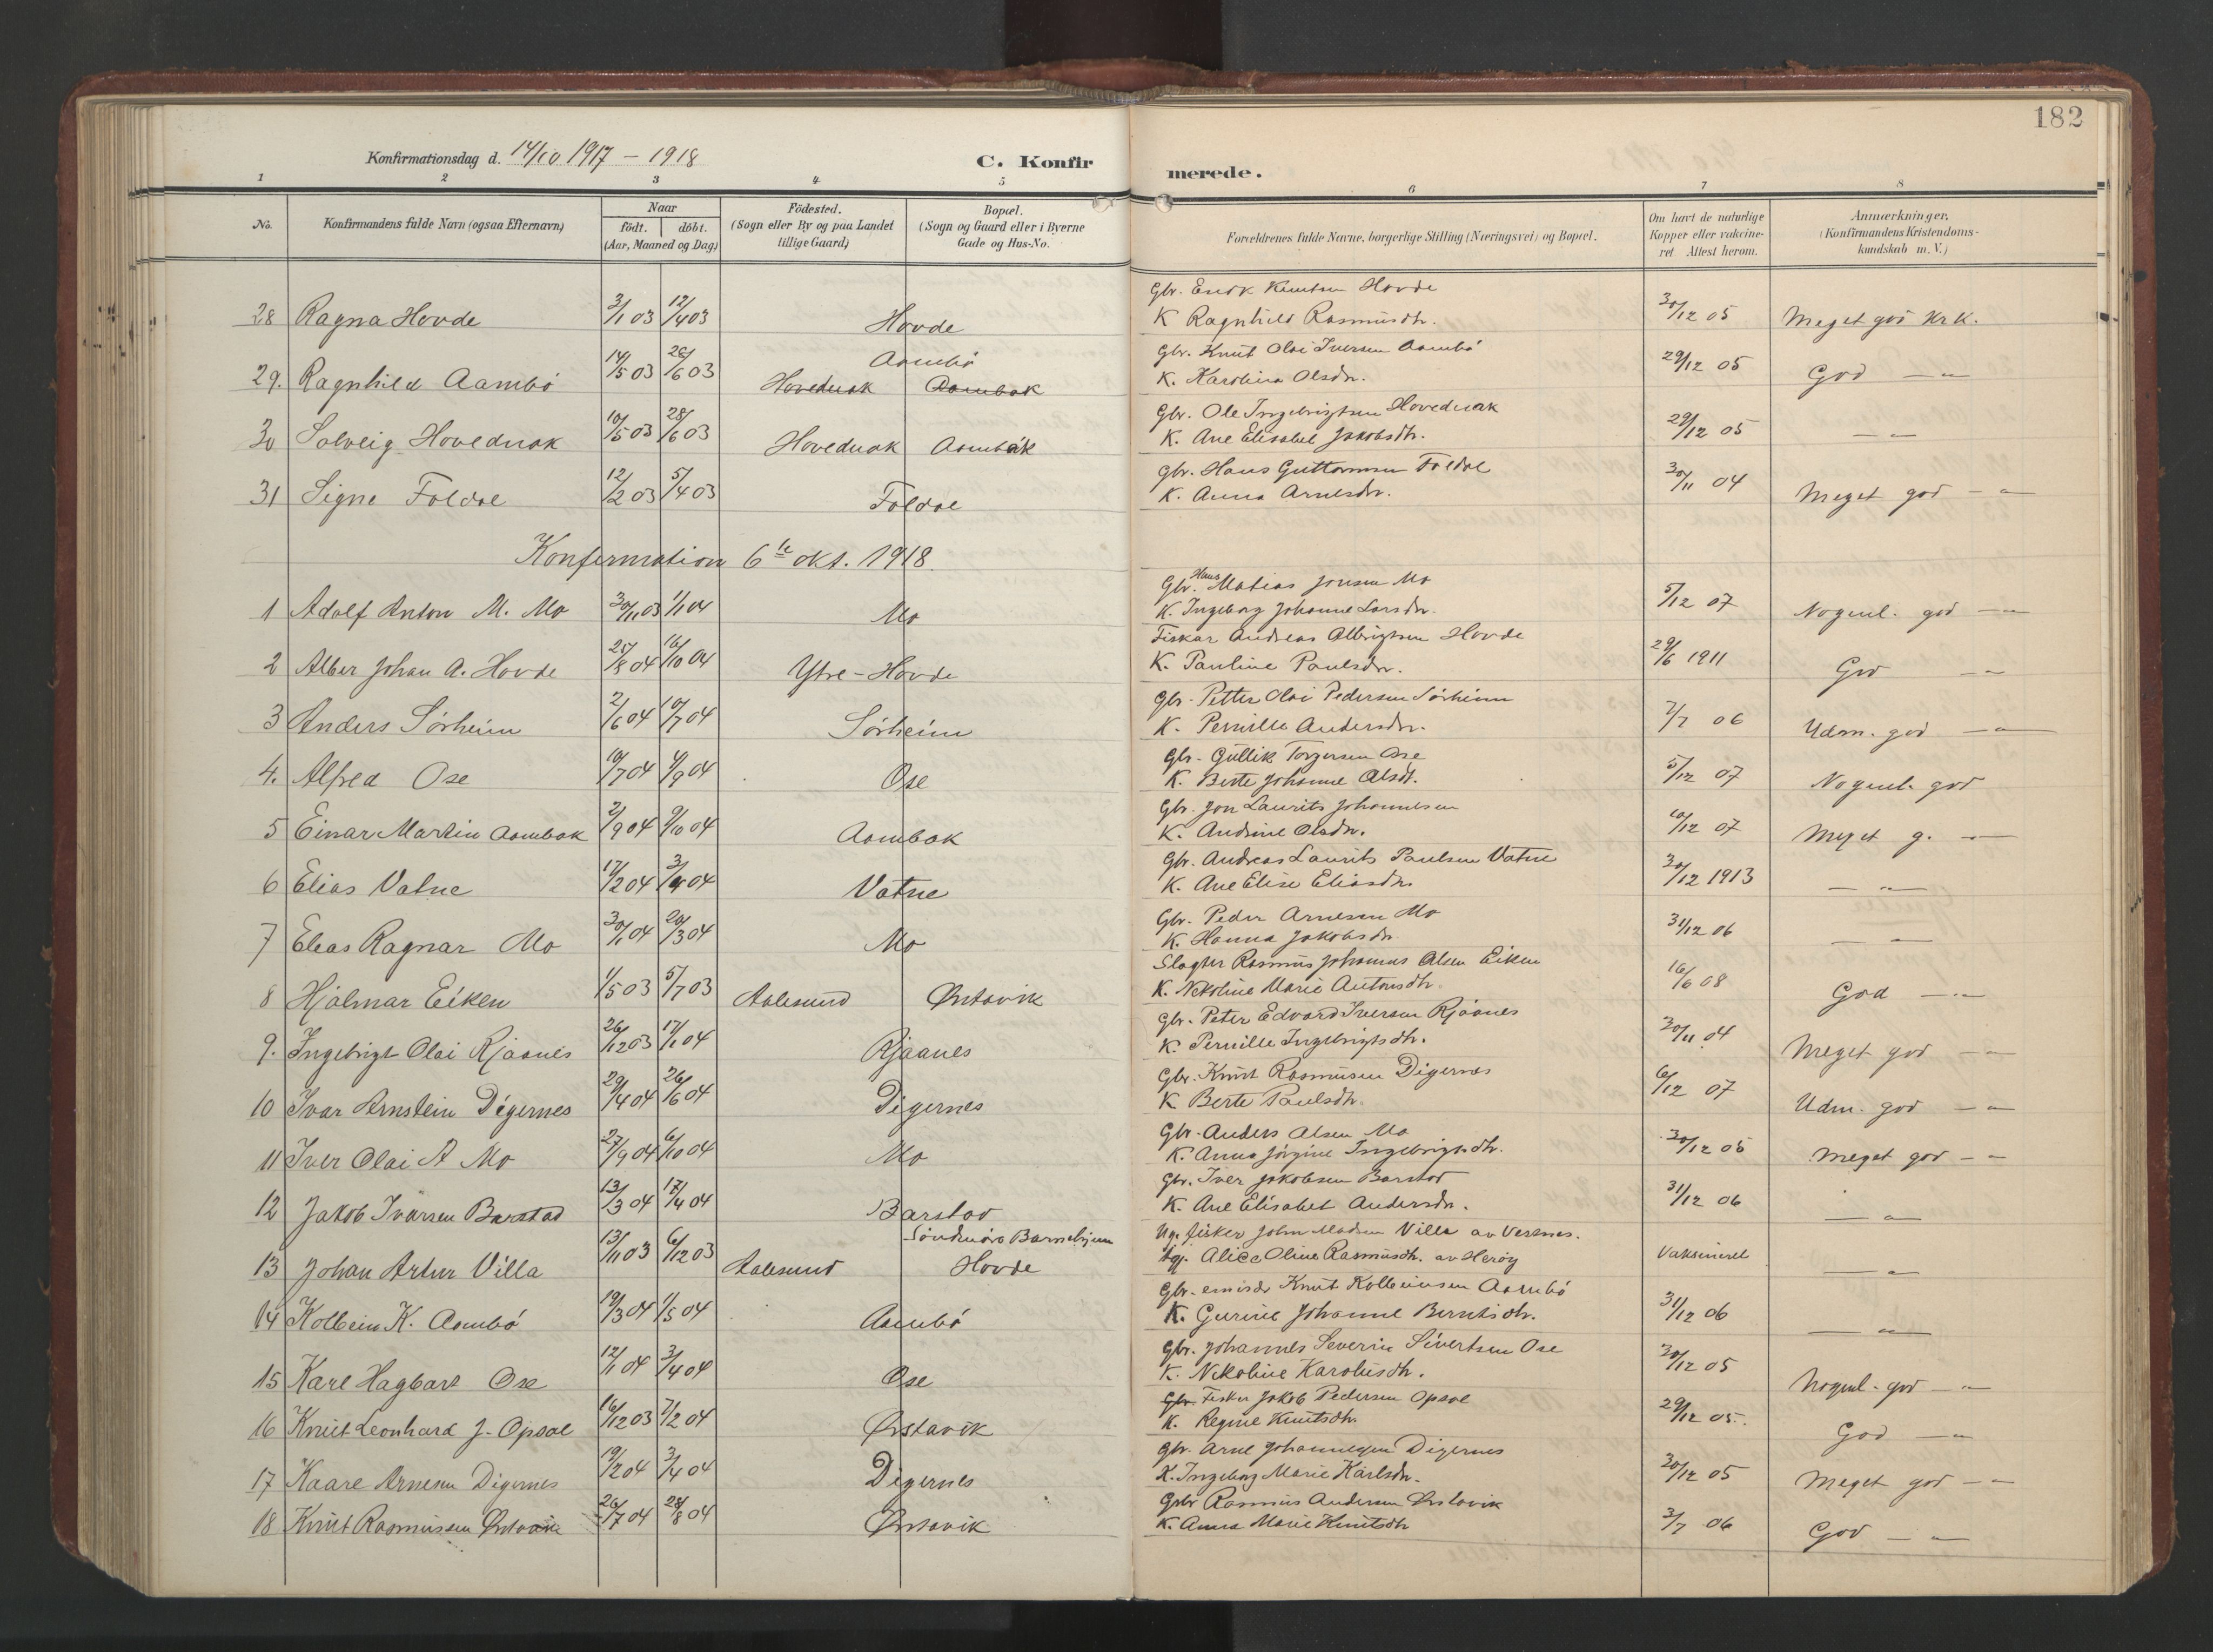 182
Konfirmationsdag d. 14/10 1917 – 1918
C. Konfirmerede.
1 2 3 4 5 6 7 8
No. Konfirmandens fulde Navn (ogsaa Efternavn) Naar født. døbt. (Aar, Maaned og Dag) Fødested. (Sogn eller By og paa Landet tillige Gaard) Bopæl. (Sogn og Gaard eller i Byerne Gade og Hus-No. Forældrenes fulde Navne, borgerlige Stilling (Næringsvei) og Bopæl. Om havt de naturlige Kopper eller vakcineret Attest herom. Anmærkninger. (Konfirmandens Kristendomskundskab m. V.)
28 Ragna Hovde 3/1 03 12/4 03 Hovde Gbr. Knutsen Hovde K Ragnhild Rasmusdtr. 30/12 05 Meget god Kr K.
29. Ragnhild Aambö 14/5 03 28/6 03 Aambö Hovednak Aambak Gbr. Knut Olai Iversen Aambö K. Karolina Olsdr. 29/12 05 God — " —
30 Solveig Hovednak 10/5 03 28/6 03 Hovednak Aambak Gbr. Ole Ingebrigtsen Hovednak K. Ane Elisabet Jakobsdtr. 29/12 05 — " —
31 Signe Foldal 12/2 03 5/4 03 Foldal Gbr. Hans Guttormsen Foldal K. Anna Arnesdr. 30/11 04 Meget god — " —
Konfirmation 6te okt. 1918.
1 Adolf Anton M. Mo 30/11 03 1/1 04 Mo Gbr. Hans Matias Jonsen Mo K. Ingeborg Johanne Larsdr. 5/12 07 Nogenl. god — " —
2 Alber Johan A. Hovde 25/8 04 16/10 04 Ytre-Hovde Fiskar Andreas Albrigtsen Hovde K. Pauline Paulsdr. 29/6 1911 God — " —
3 Anders Sörheim 2/6 04 10/7 04 Sörheim Gbr. Petter Olai Pedersen Sörheim K. Pernille Andersdr. 7/7 06 Udm. god — " —
4. Alfred Ose 10/7 04 4/9 04 Ose Gbr. Gullik Torgersen Ose K. Berte Johanne Olsdt. 5/12 07 Nogenl. god
5 Einar Martin Aambak 2/9 04 9/10 04 Aambak Gbr. Jon Laurits Johannesen K. Andrine Olsdr. 10/12 07 Meget g. — " —
6 Elias Vatne 17/2 04 3/4 04 Vatne Gbr. Andreas Laurits Paulsen Vatne K. Ane Elise Eliasdr. 30/12 1913 — " —
7 Elias Ragnar Mo 30/1 04 20/3 04 Mo Gbr. Peder Arnesen Mo K. Hanna Jakobsdr. 31/12 06 — " —
8 Hjalmar Eiken 1/5 03 5/7 03 Aalesund Ørstavik Slagter Rasmus Johannes Olsen Eiken K. Nikoline Marie Antonsdtr. 16/6 08 God — " —
9. Ingebrigt Olai Rjaanes 26/12 03 17/1 04 Rjaanes Gbr. Peter Edvard Iversen Rjaanes K. Pernille Ingebrigtsdtr. 30/11 04 Meget god — " —
10 Ivar Arnstein Digernes 29/4 04 26/6 04 Digernes Gbr. Knut Rasmusen Digernes K Berte Paulsdtr. 6/12 07 Udm. god — " —
11 Iver Olai A Mo 27/9 04 6/10 04 Mo Gbr. Anders Olsen Mo K. Anna Jörgine Ingebrigtsdtr. 30/12 05 Meget god — " —
12 Jakob Ivarsen Barstad 13/3 04 17/4 04 Barstad Gbr. Iver Jakobsen Barstad K. Ane Elisabet Andersdr. 31/12 06 — " —
13 Johan Artur Villa 13/11 03 6/12 03 Aalesund Söndmöre Barnehjem Hovde Ug. fisker John Madsen Villa av Vestnes. Pige Alice Oline Rasmusdtr. av Heröy Vaksineret — " —
14 Kolbein K. Aambö 19/3 04 1/5 04 Aambö Gbr. Knut Kolbeinsen Aambö K. Gurine Johanne Berntsdtr. 31/12 06 — " —
15 Kare Hagbart Ose 12/1 04 3/4 04 Ose Gbr. Johannes Severin Sivertsen Ose K. Nikoline Karolusdtr. 30/12 05 Nogenl. god — " —
16 Knut Leonhard J. Opsal 16/12 03 7/2 04 Ørstavik Gbr. Fisker Jakob Pedersen Opsal K. Regine Knutsdtr. 29/12 05. God — " —
17 Kaare Arnesen Digernes 19/2 04 3/4 04 Digernes Gbr. Arne Johannessen Digernes K. Ingeborg Marie Karlsdr. 30/12 05 Meget god — " —
18 Knut Rasmussen Ørstavik 26/7 04 28/8 04 Ørstavik Gbr Rasmus Andersen Ørstavik K. Anna Marie Knutsdtr 3/7 06 God — " —